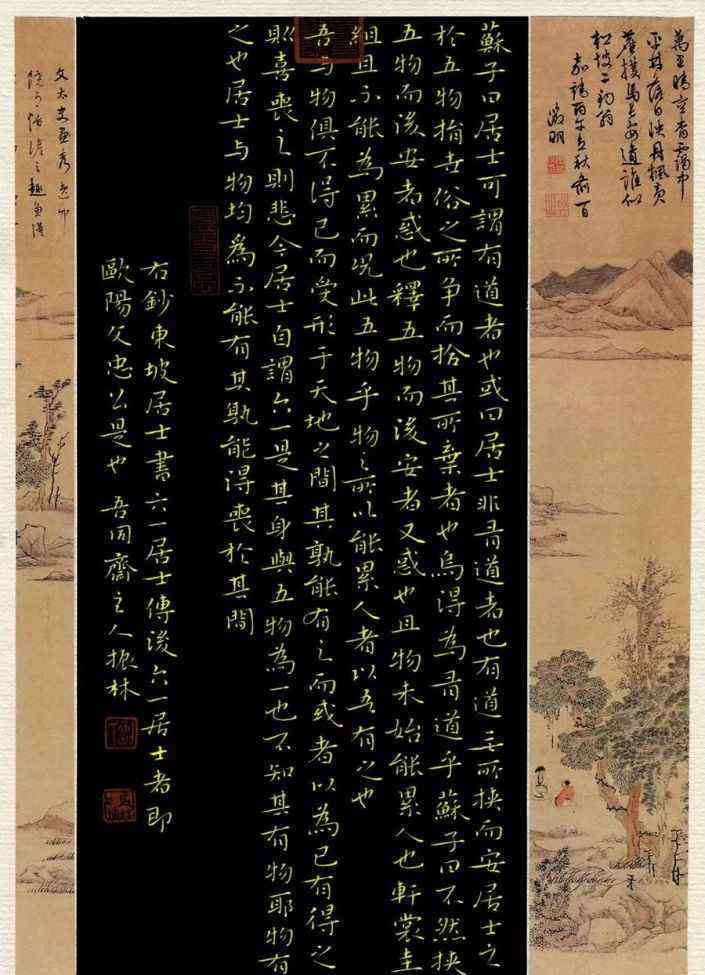 萬里晴空杳靄中
平林落日映丹楓
松坡二釣翁
嘉靖丙午九秋前一日
徵明
蘇子曰居士可謂有道者也或曰居士非有道者也有道无所挾而安居士之
於五物捐世俗之所爭而拾其所棄者也烏得為有道乎蘇子曰不然挾
五物而後安者惑也釋五物而後安者又惑也且物未始能累人也軒裳圭
組且不能為累而況此五物乎物之所以能累人者以吾有之也
吾与物俱不得已而受形于天地之間其孰能有之而或者以為己有得之
則喜喪之則悲今居士自謂六一是其身與五物為一也不知其有物耶物有
之也居士与物均為不能有其孰能得喪於其間
右鈔東坡居士書六一居士傳後六一居士者即
歐陽文忠公是也 吾同齋主人振林
文太史畫